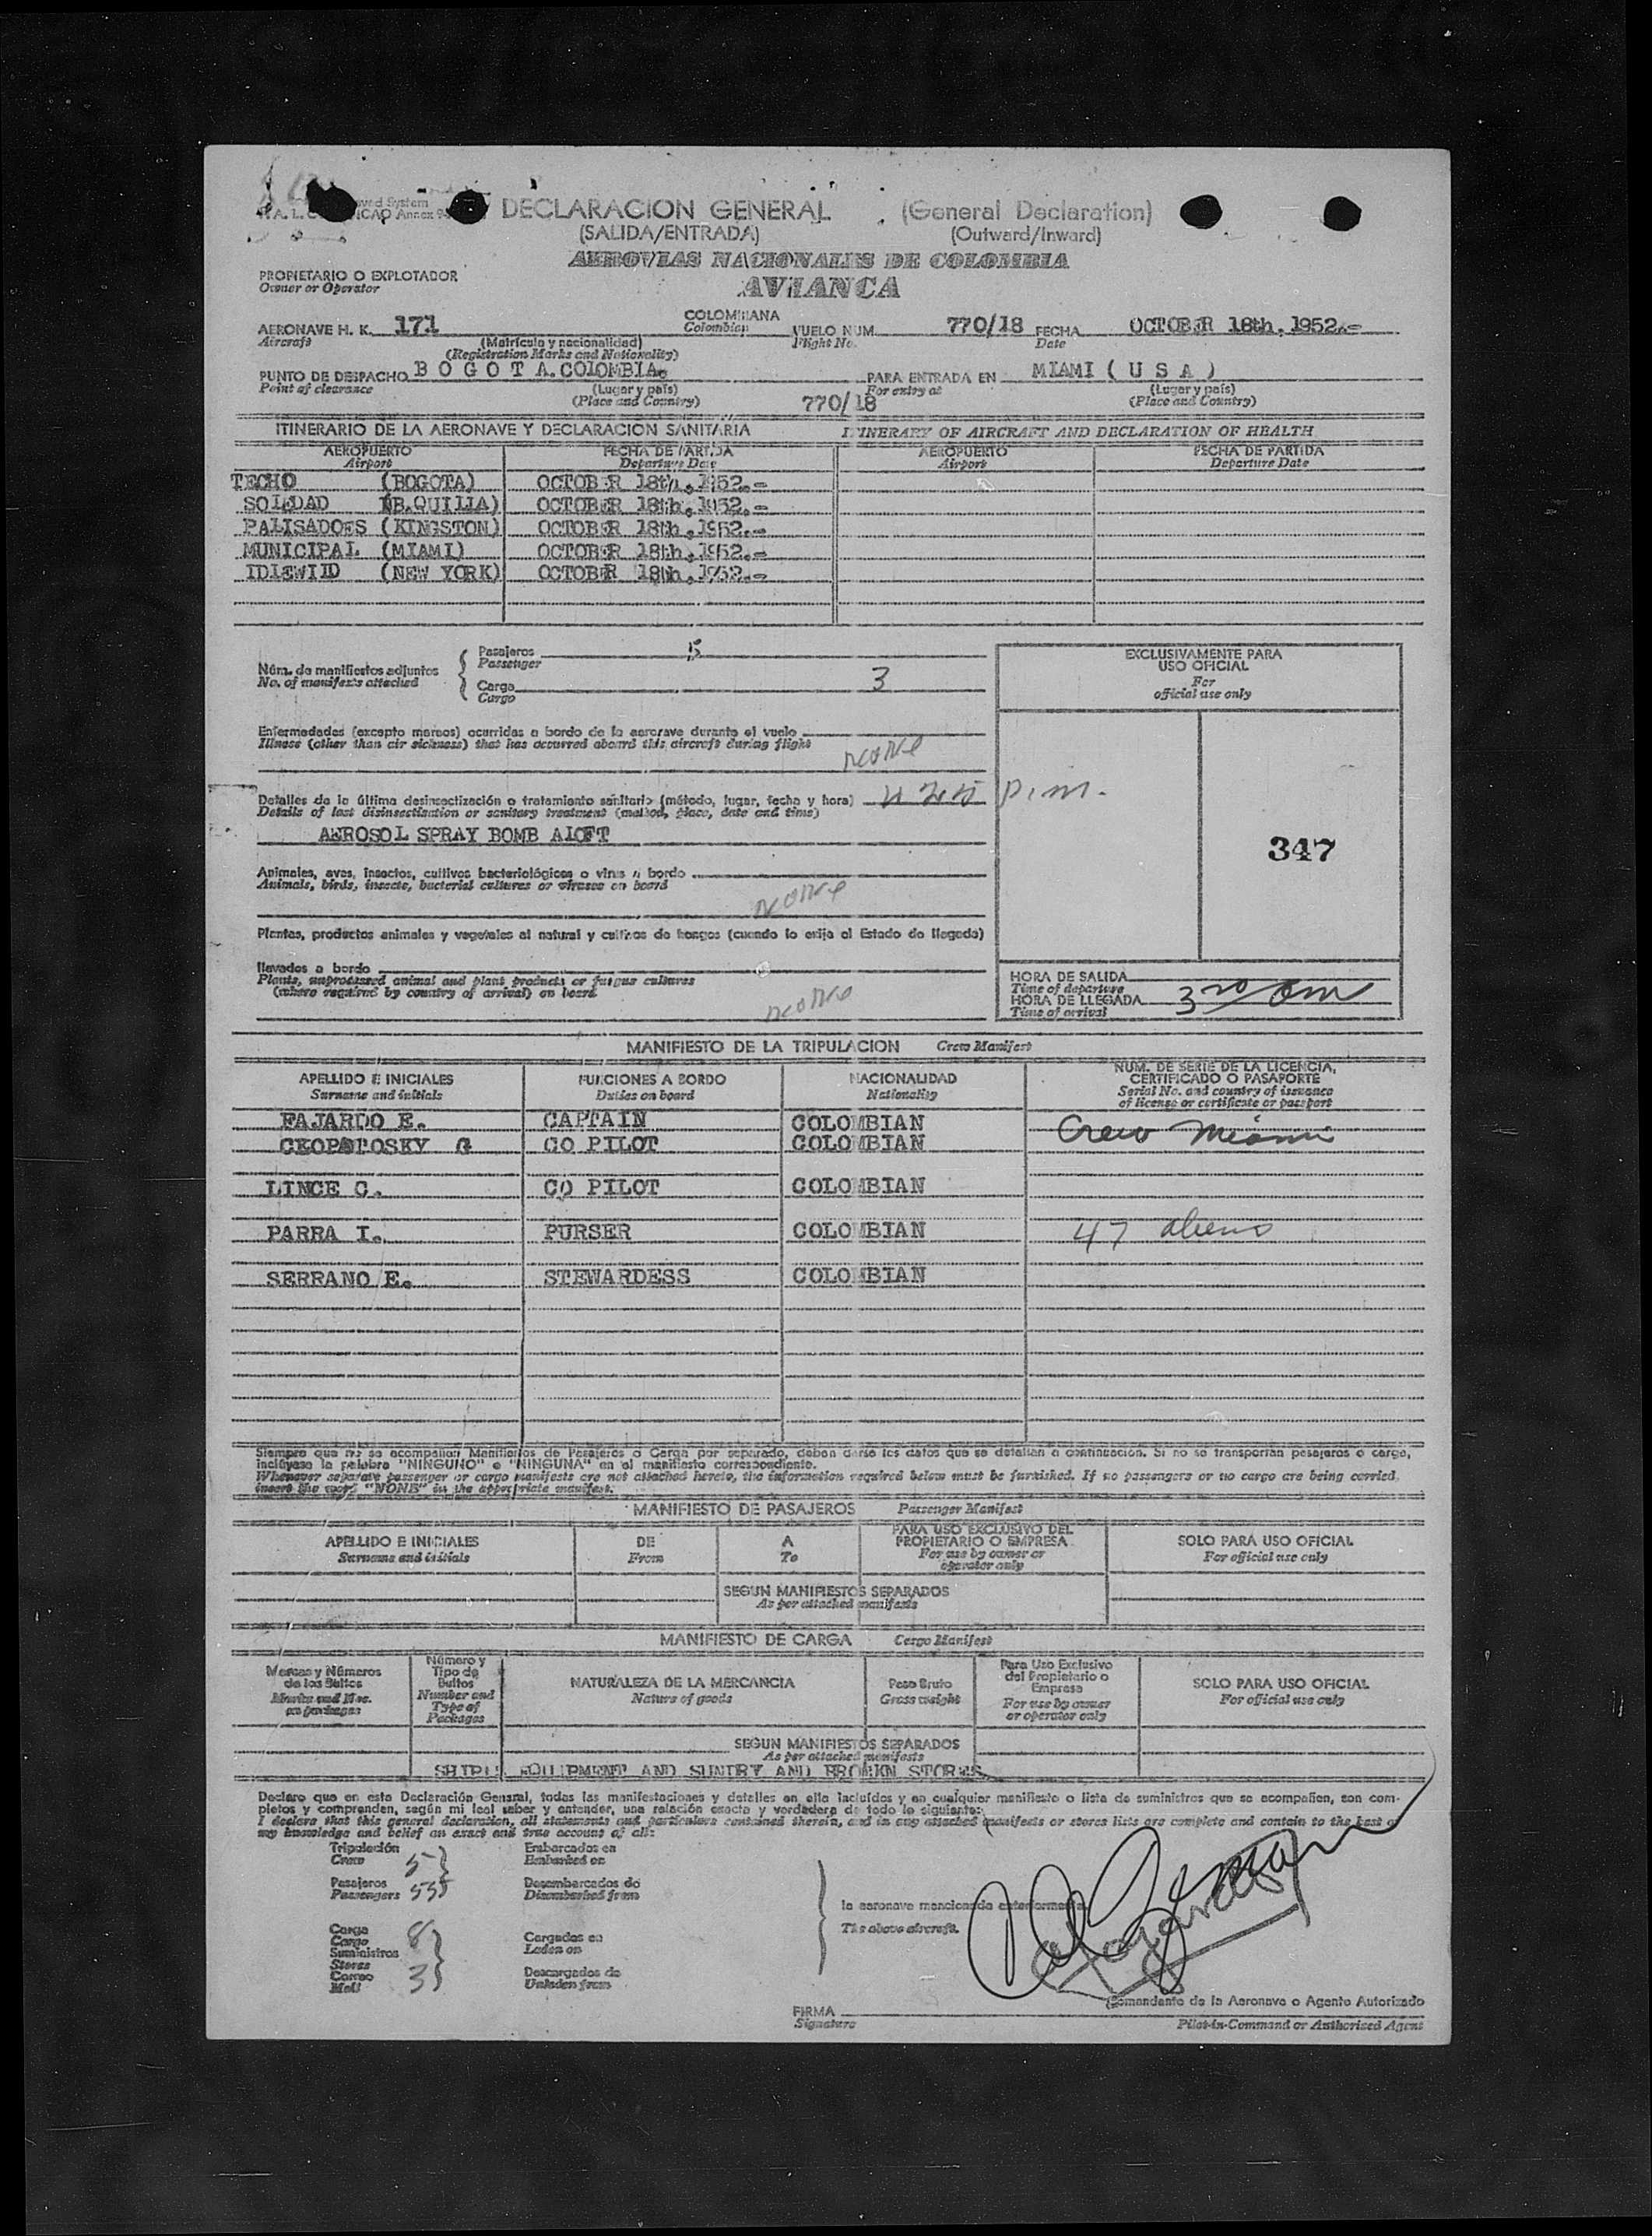 DECLARACION GENERAL (General Declaration)
(SALIDA/ENTRADA) (Outward/Inward)
ICAO Annex
AEROVIAS NACIONALES DE COLOMBIA
PROPIETARIO O EXPLOTADOR
Owner or Operator
AVIANCA
AERONAVE H. K. 171 COLOMBIANA VUELO NUM. 770/18 FECHA OCTOBER 18th, 1952.-
Aircraft (Matrícula y nacionalidad) Colombian Flight No. Date
(Registration Marks and Nationality)
PUNTO DE DESPACHO B O G O T A. COLOMBIA. PARA ENTRADA EN MIAMI ( U S A )
Point of clearance (Lugar y país) For entry at (Lugar y país)
(Place and Country) 770/18 (Place and Country)
ITINERARIO DE LA AERONAVE Y DECLARACION SANITARIA ITINERARY OF AIRCRAFT AND DECLARATION OF HEALTH
AEROPUERTO FECHA DE PARTIDA AEROPUERTO FECHA DE PARTIDA
Airport Departure Date Airport Departure Date
TECHO (BOGOTA) OCTOBER 18th, 1952.-
SOLEDAD (B.QUILLA) OCTOBER 18th, 1952.-
PALISADOES (KINGSTON) OCTOBER 18th, 1952.-
MUNICIPAL (MIAMI) OCTOBER 18th, 1952.-
IDLEWILD (NEW YORK) OCTOBER 18th, 1952.-
Núm. de manifiestos adjuntos
No. of manifests attached
Pasajeros 5
Passenger
Carga 3
Cargo
EXCLUSIVAMENTE PARA
USO OFICIAL
For
official use only
Enfermedades (excepto mareos) ocurridas a bordo de la aeronave durante el vuelo
Illness (other than air sickness) that has occurred aboard this aircraft during flight
none
Detalles de la última desinsectización o tratamiento sanitario (método, lugar, fecha y hora) p.m.
Details of last disinsectisation or sanitary treatment (method, place, date and time)
AEROSOL SPRAY BOMB ALOFT
347
Animales, aves, insectos, cultivos bacteriológicos o virus a bordo
Animals, birds, insects, bacterial cultures or viruses on board
none
Plantas, productos animales y vegetales al natural y cultivos de hongos (cuando lo exija el Estado de llegada)
llevados a bordo
Plants, unprocessed animal and plant products or fungus cultures
(where required by country of arrival) on board
none
HORA DE SALIDA
Time of departure
HORA DE LLEGADA
Time of arrival
MANIFIESTO DE LA TRIPULACION Crew Manifest
APELLIDO E INICIALES FUNCIONES A BORDO NACIONALIDAD NUM. DE SERIE DE LA LICENCIA, CERTIFICADO O PASAPORTE
Surname and initials Duties on board Nationality Serial No. and country of issuance of license or certificate or passport
FAJARDO E. CAPTAIN COLOMBIAN Crew Miami
CO PILOT COLOMBIAN
LINCE C. CO PILOT COLOMBIAN
PARRA I. PURSER COLOMBIAN 47 aliens
SERRANO E. STEWARDESS COLOMBIAN
Siempre que no se acompañen Manifiestos de Pasajeros o Carga por separado, deben darse los datos que se detallan a continuación. Si no se transportan pasajeros o carga,
inclúyase la palabra "NINGUNO" o "NINGUNA" en el manifiesto correspondiente.
Whenever separate passenger or cargo manifests are not attached hereto, the information required below must be furnished. If no passengers or no cargo are being carried,
insert the word "NONE" in the appropriate manifest.
MANIFIESTO DE PASAJEROS Passenger Manifest
APELLIDO E INICIALES DE A PARA USO EXCLUSIVO DEL PROPIETARIO O EMPRESA SOLO PARA USO OFICIAL
Surname and initials From To For use by owner or operator only For official use only
SEGUN MANIFIESTOS SEPARADOS
As per attached manifests
MANIFIESTO DE CARGA Cargo Manifest
Marcas y Números de los Bultos Número y Tipo de Bultos NATURALEZA DE LA MERCANCIA Peso Bruto Para Uso Exclusivo del Propietario o Empresa SOLO PARA USO OFICIAL
Marks and Nos. on packages Number and Type of Packages Nature of goods Gross weight For use by owner or operator only For official use only
SEGUN MANIFIESTOS SEPARADOS
As per attached manifests
EQUIPMENT AND SUNTRY AND BROMKN STORES.
Declaro que en esta Declaración General, todas las manifestaciones y detalles en ella incluídos y en cualquier manifiesto o lista de suministros que se acompañen, son com-
pletos y comprenden, según mi leal saber y entender, una relación exacta y verdadera de todo lo siguiente:
I declare that this general declaration, all statements and particulars contained therein, and in any attached manifests or stores lists are complete and contain to the best of
my knowledge and belief an exact and true account of all:
Tripulación Embarcados en
Crew 5 Embarked on
Pasajeros Desembarcados de
Passengers 55 Disembarked from
la aeronave mencionada anteriormente
The above aircraft.
Carga 8 Cargados en
Cargo Laden on
Suministros
Stores
Correo 3 Descargados de
Mail Unladen from
FIRMA Comandante de la Aeronave o Agente Autorizado
Signature Pilot-in-Command or Authorised Agent